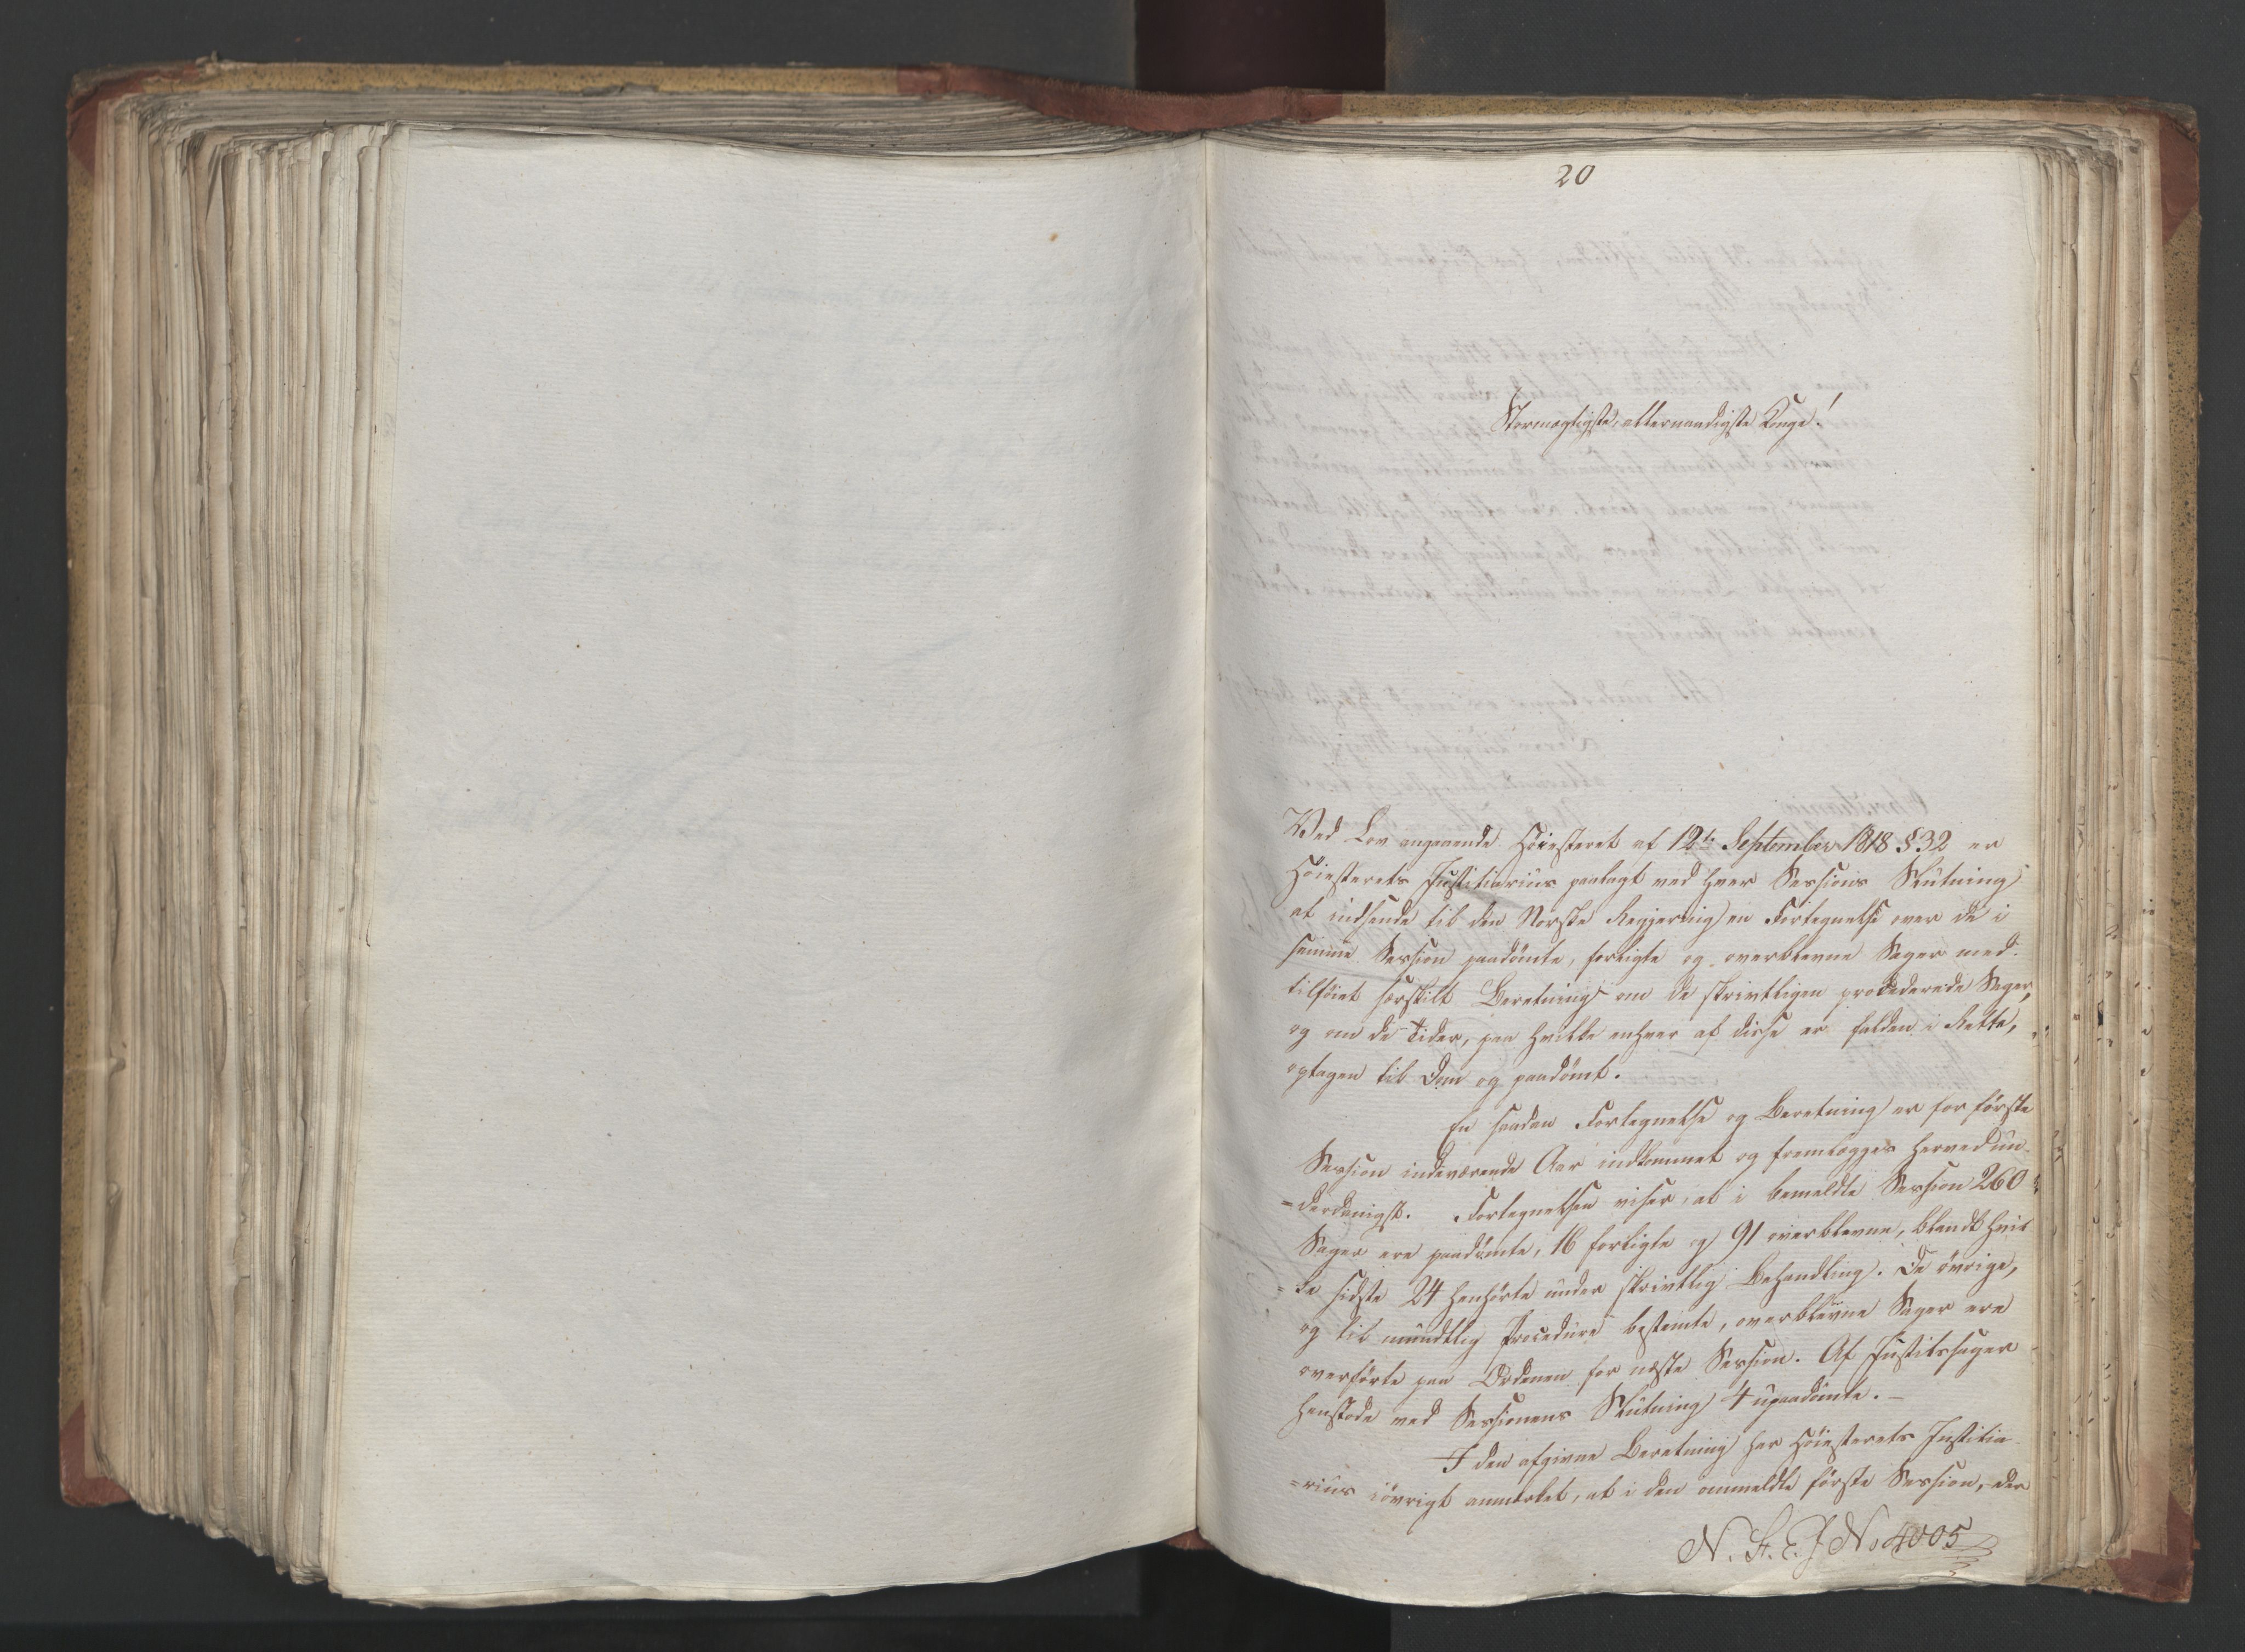 20
Stormægtigste, allernaadigste Konge!
Ved Lov angaaende Höiesteret af 12te September 1818 § 32 er
Höiesterets Justitiarius paalagt ved hver Sessions Slutning
at indsende til den Norske Regjering en Fortegnelse over de i
samme Session paadömte, forligte og overblevne Sager med
tilföiet særskilt Beretning om de skrivtligen procederede Sager,
og om de Tider, paa hvilke enhver af disse er falden i Rette,
optagen til Dom og paadömt.
En saadan Fortegnelse og Beretning er for förste
Session indeværende Aar indkommet og fremlægges herved un-
=derdanigst. Fortegnelsen viser, at i bemeldte Session 260
Sager ere paadömte, 16 forligte og 91 overblevne, blandt hvil
=ke sidste 24 henhörte under skrivtlig Behandling. De övrige,
og til mundtlig Procedure bestemte, overblevne Sager ere
overförte paa Ordenen for næste Session. Af Justitssager
henstode ved Sessionens Slutning 4 upaadömte.-
I den afgivne Beretning har Höiesterets Justitia
=rius iövrigt anmærket, at i den ommeldte förste Session, der
N. S. E. J No 4005